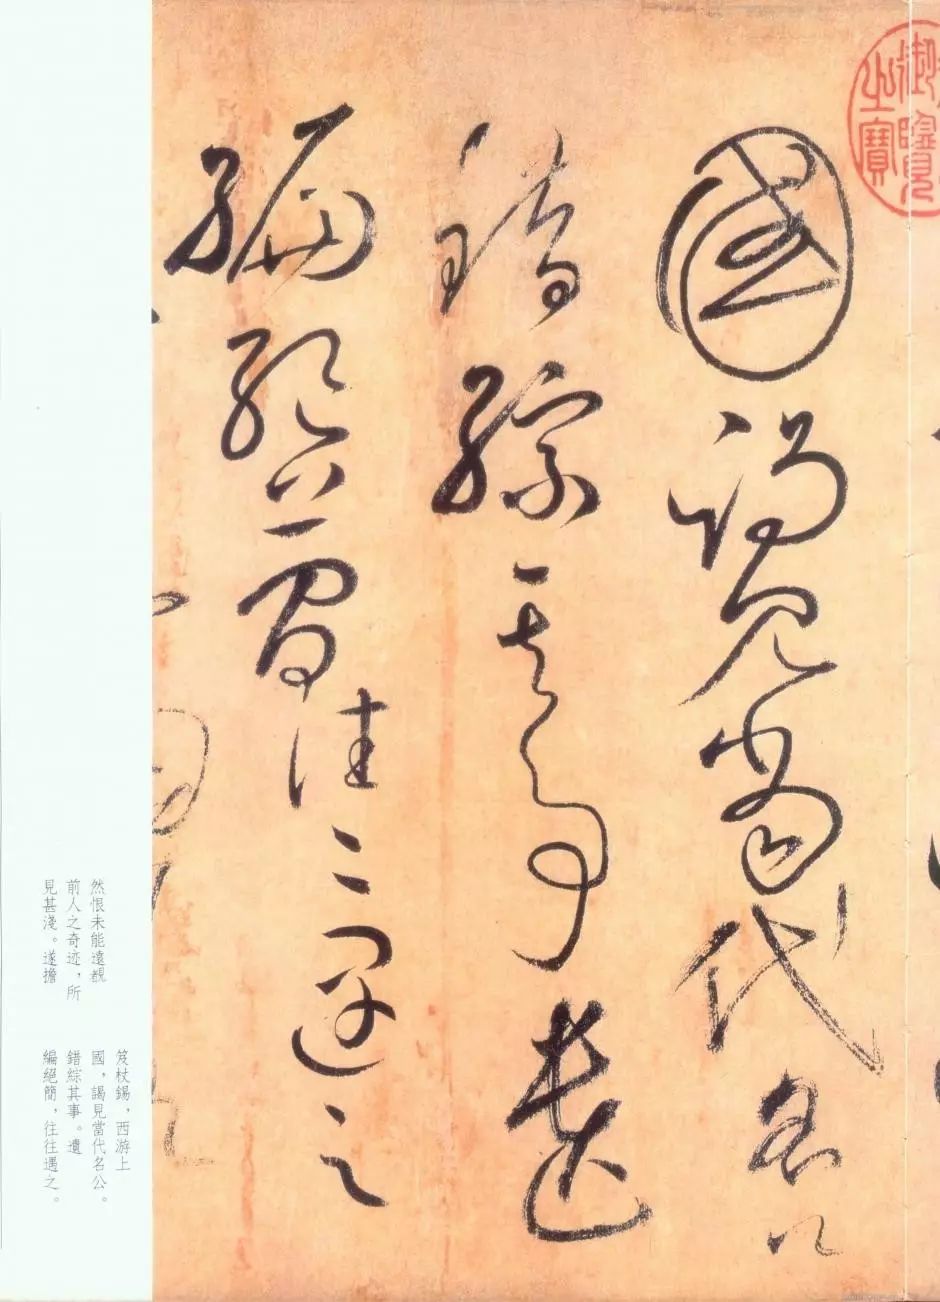 御覽
之寶
國謁見當代名公
錯綜其事遺
編絕簡往往遇之
然恨未能遠覩
前人之奇迹，所
見甚淺。遂擔
笈杖錫，西游上
國，謁見當代名公。
錯綜其事。遺
編絕簡，往往遇之。